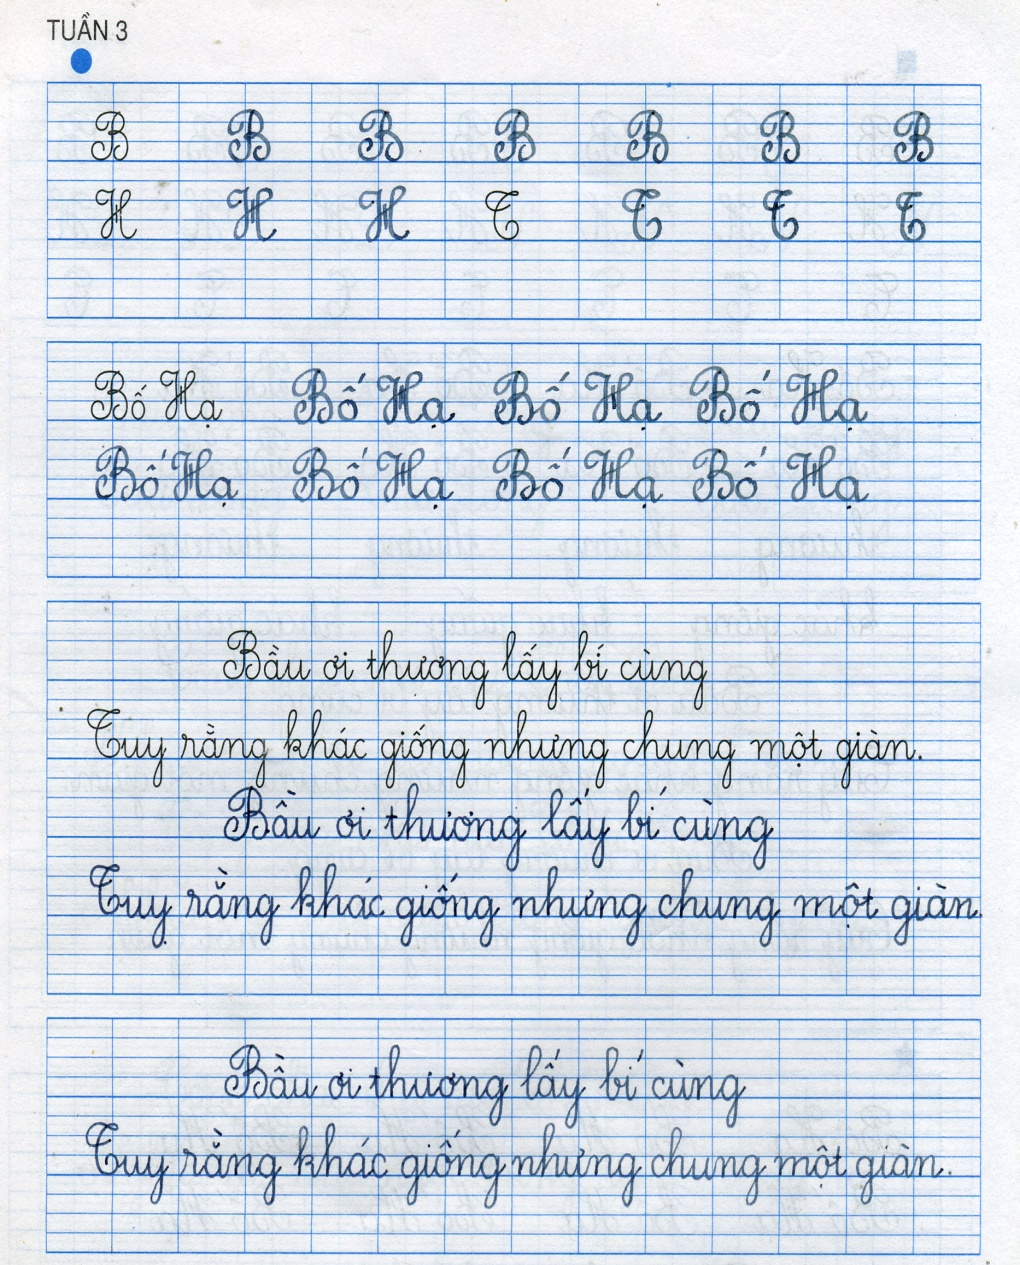 TUẦN 3
B B B B B B B
H H H T T T T
Bố Hạ Bố Hạ Bố Hạ Bố Hạ
Bố Hạ Bố Hạ Bố Hạ Bố Hạ
Bầu ơi thương lấy bí cùng
Tuy rằng khác giống nhưng chung một giàn.
Bầu ơi thương lấy bí cùng
Tuy rằng khác giống nhưng chung một giàn.
Bầu ơi thương lấy bí cùng
Tuy rằng khác giống nhưng chung một giàn.